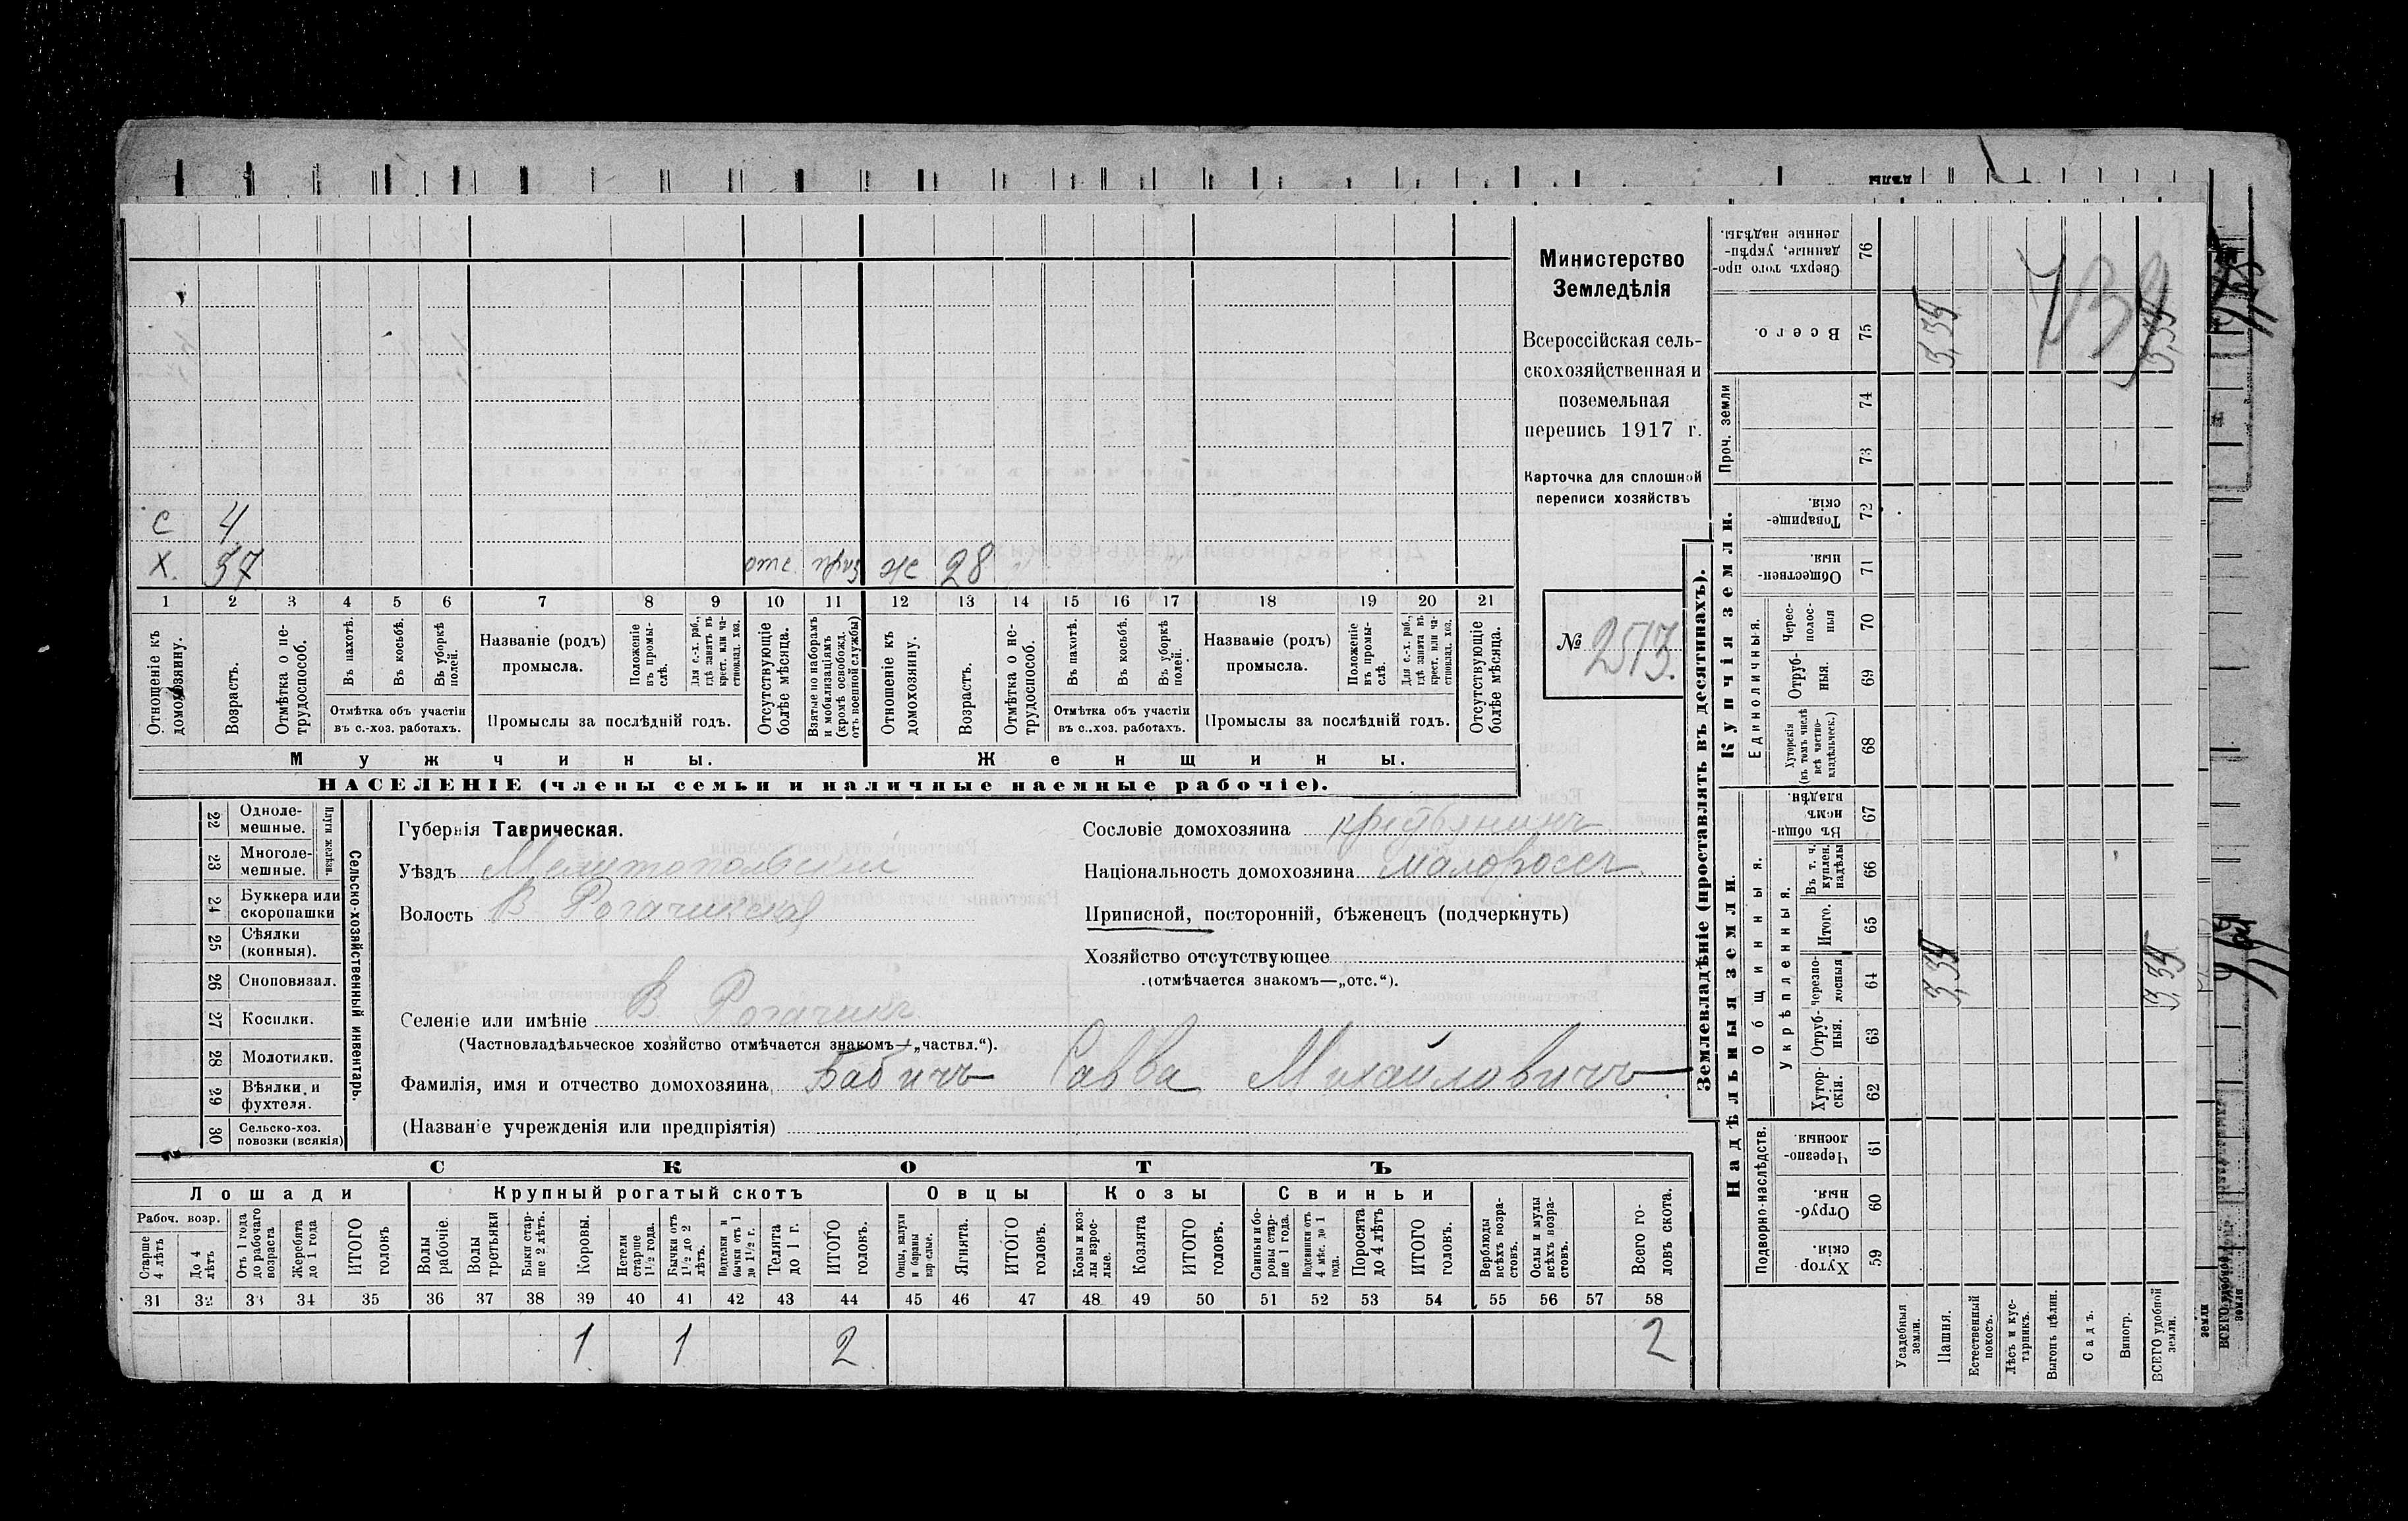 Министерство
Земледѣлія
Всероссійская сель-
скохозяйственная и
поземельная
перепись 1917 г.
Карточка для сплошной
переписи хозяйствъ
№ 2513.
с 4
х. 37 отс. ж 28
1 2 3 4 5 6 7 8 9 10 11 12 13 14 15 16 17 18 19 20 21
Отношеніе къ домохозяину.
Возрастъ.
Отмѣтка о не-трудоспособ.
Въ пахотѣ.
Въ косьбѣ.
Въ уборкѣ полей.
Отмѣтка объ участіи
въ с.-хоз. работахъ.
Названіе (родъ)
промысла.
Положеніе въ промы-слѣ.
Для с.-х. раб., гдѣ занятъ въ крест. или ча-стновлад. хоз.
Промыслы за послѣдній годъ.
Отсутствующіе болѣе мѣсяца.
Взятые по наборамъ и мобилизаціямъ (кромѣ освобожд. отъ военной службы)
Отношеніе къ домохозяину.
Возрастъ.
Отмѣтка о не-трудоспособ.
Въ пахотѣ.
Въ косьбѣ.
Въ уборкѣ полей.
Отмѣтка объ участіи
въ с.-хоз. работахъ.
Названіе (родъ)
промысла.
Положеніе въ промы-слѣ.
Для с.-х. раб., гдѣ занятъ въ крест. или ча-стновлад. хоз.
Промыслы за послѣдній годъ.
Отсутствующіе болѣе мѣсяца.
Мужчины. Женщины.
НАСЕЛЕНІЕ (члены семьи и наличные наемные рабочіе).
22 Одноле-мешные.
23 Многоле-мешные.
Плуги желѣзн.
24 Буккера или скоропашки
25 Сѣялки (конныя).
26 Сноповязал.
27 Косилки.
28 Молотилки.
29 Вѣялки и фухтеля.
30 Сельско-хоз. повозки (всякія)
Сельско-хозяйственный инвентарь.
Губернія Таврическая.
Уѣздъ Мелитопольскій
Волость В Рогачикская
Селеніе или имѣніе В. Рогачикъ
(Частновладѣльческое хозяйство отмѣчается знакомъ—„частвл.“).
Фамилія, имя и отчество домохозяина Бабичъ Савва Михайловичъ
(Названіе учрежденія или предпріятія)
Сословіе домохозяина крестьянинъ
Національность домохозяина малороссъ.
Приписной, посторонній, бѣженецъ (подчеркнуть)
Хозяйство отсутствующее
(отмѣчается знакомъ—„отс.“).
СКОТЪ
Лошади Крупный рогатый скотъ Овцы Козы Свиньи
Рабоч. возр.
Старше 4 лѣтъ
До 4 лѣтъ
Отъ 1 года до рабочаго возраста
Жеребята до 1 года
ИТОГО головъ
Волы рабочіе.
Волы третьяки
Быки стар-ше 2 лѣтъ.
Коровы.
Нетели старше 1½ года.
Бычки отъ 1½ до 2 лѣтъ.
Подтелки и бычки отъ 1 до 1½ г.
Телята до 1 г.
ИТОГО головъ.
Овцы, валухи и бараны взрослые.
Ягнята.
ИТОГО головъ.
Козы и коз-лы взрос-лые.
Козлята
ИТОГО головъ.
Свиньи и бо-ровы стар-ше 1 года.
Подсвинки отъ 4 мѣс. до 1 года.
Поросята до 4 лѣтъ
ИТОГО головъ.
Верблюды всѣхъ возра-стовъ.
Ослы и мулы всѣхъ возра-стовъ.
Всего го-ловъ скота.
31 32 33 34 35 36 37 38 39 40 41 42 43 44 45 46 47 48 49 50 51 52 53 54 55 56 57 58
1 1 2 2
Землевладѣніе (проставлять въ десятинахъ).
Надѣльныя земли.
Купчія земли.
Проч. земли
Подворно-наслѣдств.
Общинныя.
Укрѣпленныя.
Единоличныя.
Хутор-скія. 59
Отруб-ныя. 60
Черезпо-лосныя. 61
Хутор-скія. 62
Отруб-ныя. 63
Черезпо-лосныя 64
Итого. 65
Въ т. ч. куплен. надѣлы 66
Въ общи-номъ владѣн. 67
Хуторскія (въ томъ числѣ всѣ частно-владѣльческ.) 68
Отруб-ныя. 69
Черес-полос-ныя 70
Обществен-ныя 71
Товарище-скія. 72
73
74
Всего. 75
Сверхъ того про-данные, укрѣп-ленные надѣлы. 76
Усадебныя земли.
Пашня. 3,34 3,34
Естественный покосъ.
Лѣсъ и кус-тарникъ.
Выгонъ цѣлин.
Садъ.
Виногр.
ВСЕГО удобной земли. 3,34 3,34
739